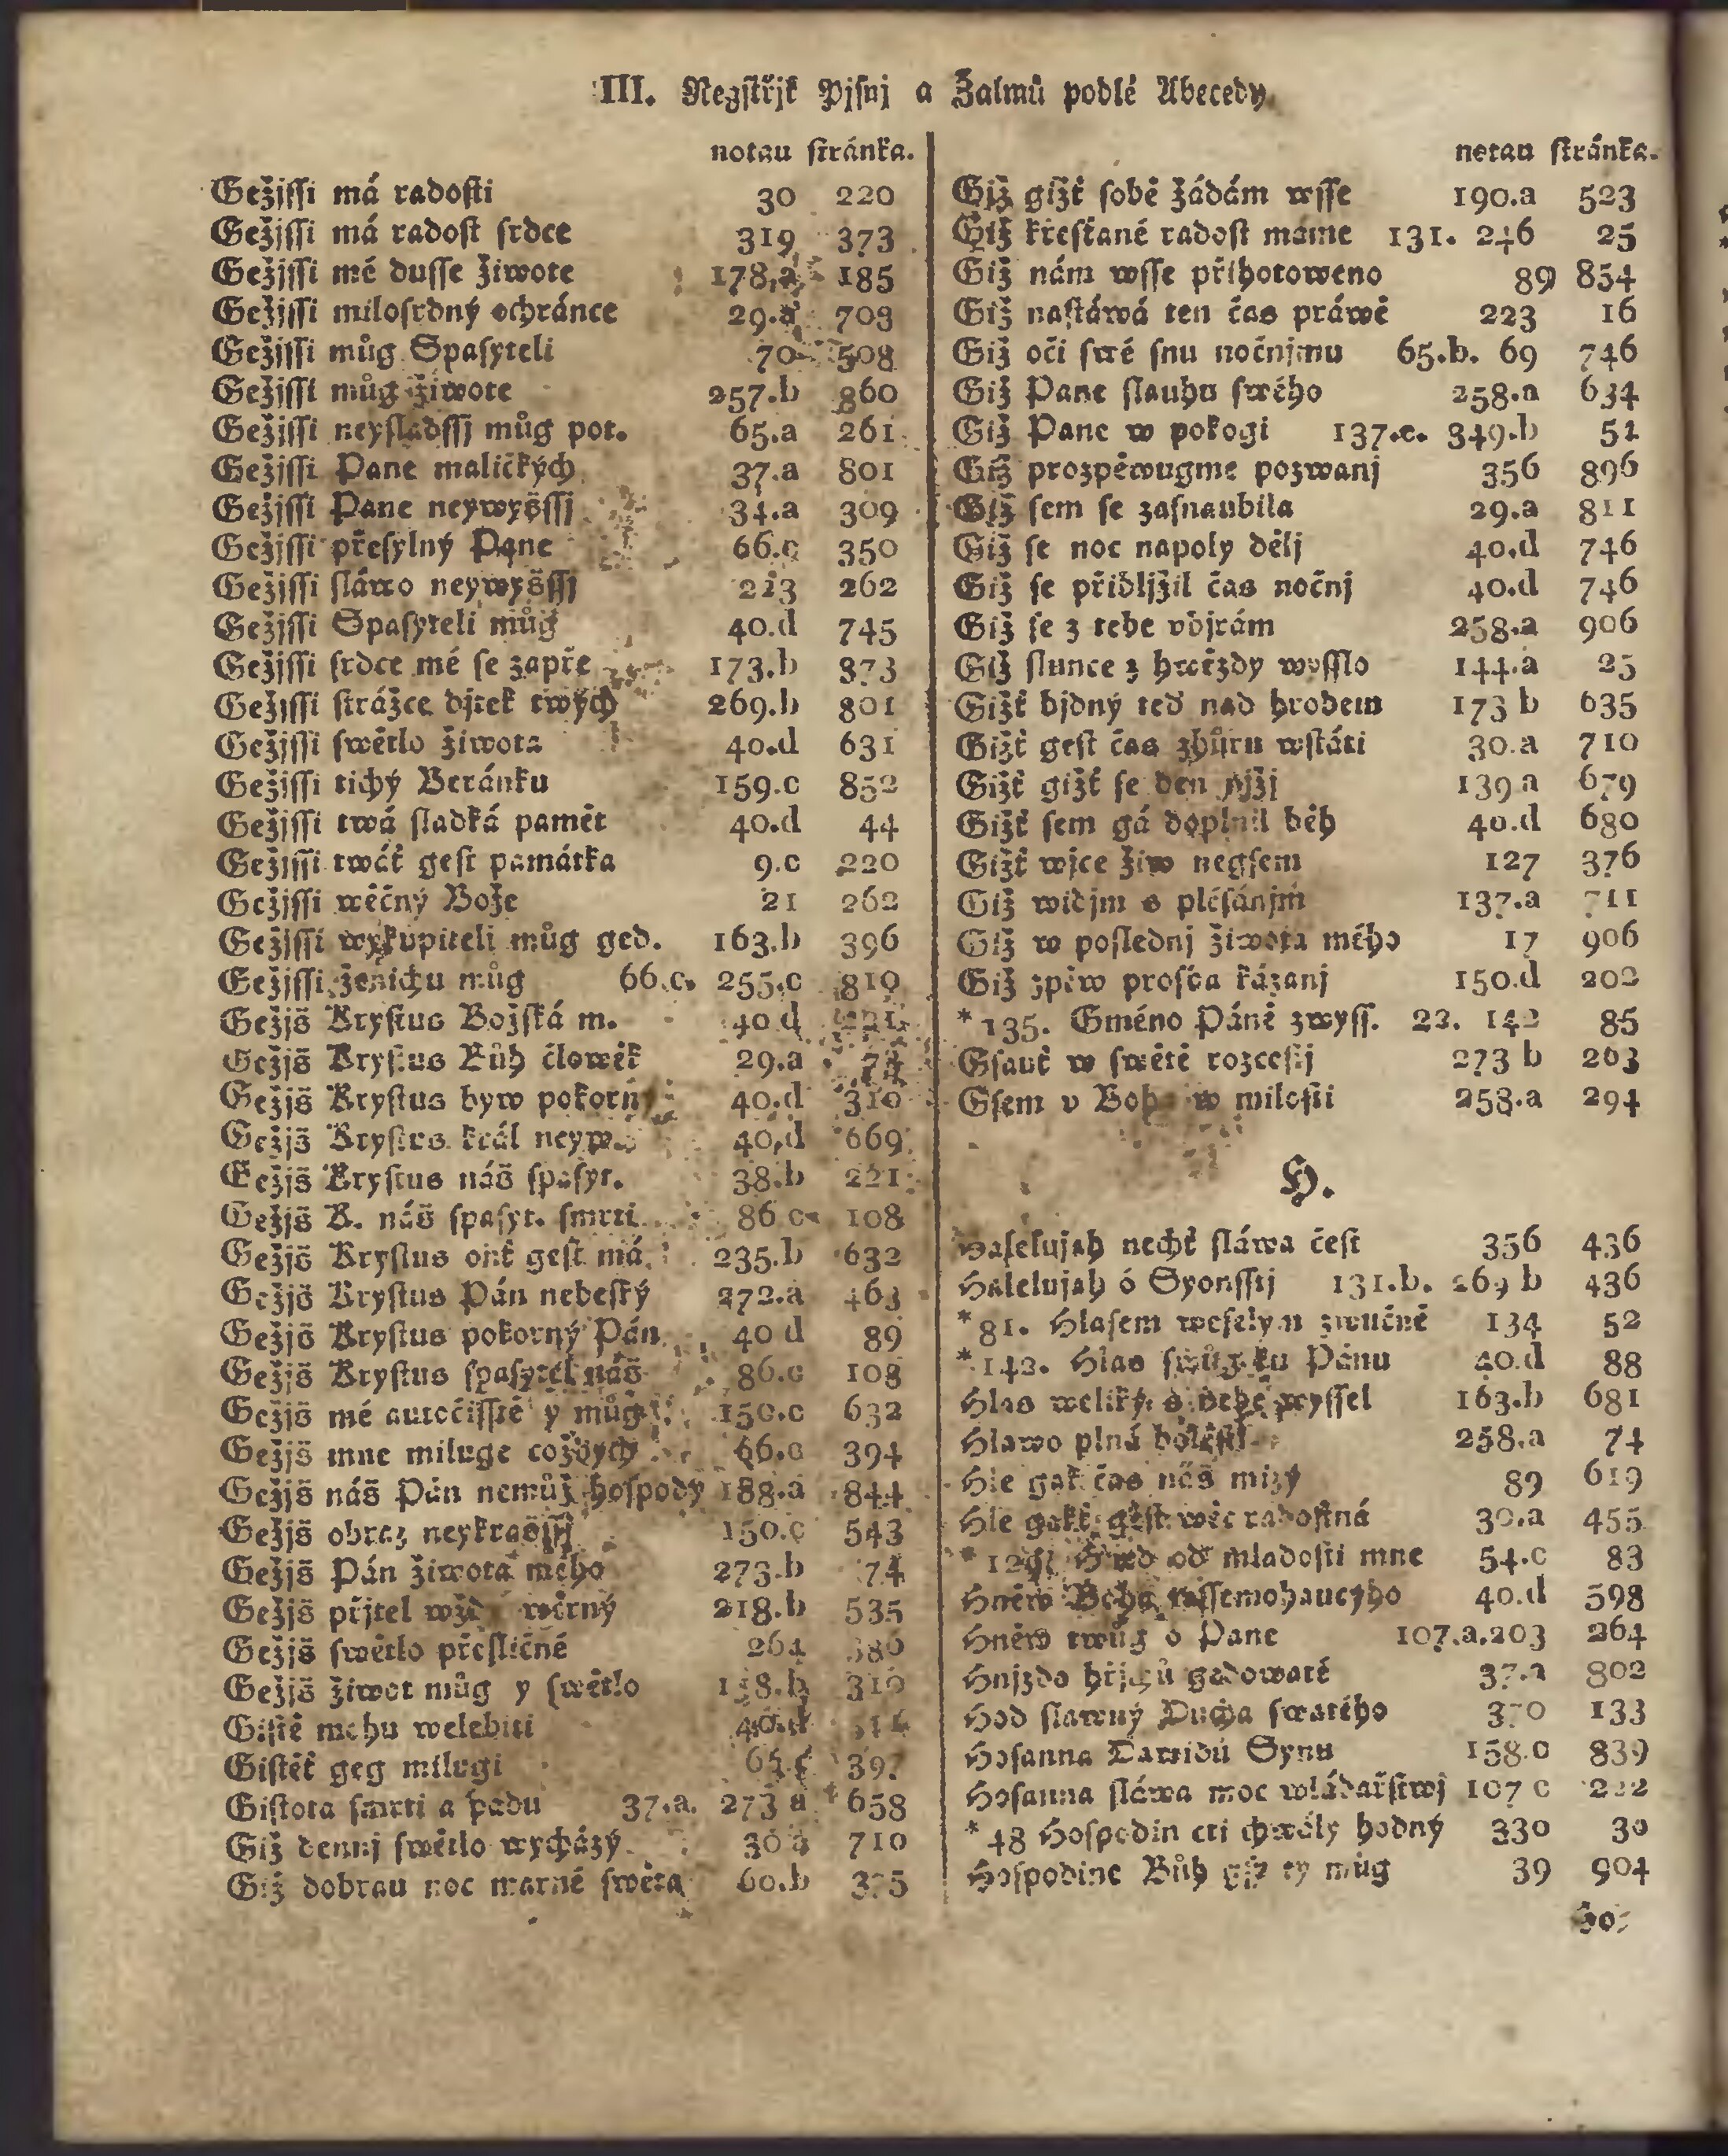 III. Regſtřjk Pjſnj a Žalmů podlé Abecedy.
notau ſtránka.
Gežjſſi má radoſti 30 220
Gežjſſi má radoſt ſrdce 319 373
Gežjſſi mé duſſe žiwote 178.a 185
Gežjſſi miloſrdný ochránce 29.a 703
Gežjſſi můg Spaſyteli 70 508
Gežjſſi můg žiwote 257.b 860
Gežjſſi neyſladſſj můg pot. 65.a 261
Gežjſſi Pane maličkých 37.a 801
Gežjſſi Pane neywyšſſj 34.a 309
Gežjſſi přeſylný Pane 66.c 350
Gežjſſi ſláwo neywyšſſj 213 262
Gežjſſi Spaſyteli můg 40.d 745
Gežjſſi ſrdce mé ſe zapře 173.b 873
Gežjſſi ſtrážce djtek twých 269.b 801
Gežjſſi ſwětlo žiwota 40.d 631
Gežjſſi tichý Beránku 159.c 852
Gežjſſi twá ſladká pamět 40.d 44
Gežjſſi twáť geſt památka 9.c 220
Gežjſſi wěčný Bože 21 262
Gežjſſi wykupiteli můg ged. 163.b 396
Gežjſſi ženichu můg 66.c. 255.c 810
Gežjš Kryſtus Božſká m. 40 d
Gežjš Kryſtus Bůh člowěk 29.a 74
Gežjš Kryſtus byw pokorný 40.d 310
Gežjš Kryſtus král 40.d 669
Gežjš Kryſtus náš ſpaſyt. 38.b 221
Gežjš K. náš ſpaſyt. ſmrti 86 c 108
Gežjš Kryſtus onť geſt má 235.b 632
Gežjš Kryſtus Pán nebeſký 272.a 463
Gežjš Kryſtus pokorný Pán 40 d 89
Gežjš Kryſtus ſpaſytel náš 86.c 108
Gežjš mé autočiſſtě y můg 150.c 632
Gežjš mne miluge cožbych 66.c 394
Gežjš náš Pán nemůž hoſpody 188.a 844
Gežjš obraz neykraſſj 150.c 543
Gežjš Pán žiwota mého 273.b 74
Gežjš přjtel wěrný 218.b 535
Gežjš ſwětlo přeſličné 264
Gežjš žiwot můg y ſwětlo 310
Giſtě mohu welebiti 40.d
Giſtěť geg milugi
Giſtota ſmrti a pádu 37.a. 273 a 658
Giž dennj ſwětlo wycházý 30 a 710
Giž dobrau noc marné ſwěta 60.b
notau ſtránka.
Giž gižť ſobě žádám wſſe 190.a 523
Giž křeſťané radoſt máme 131. 246 25
Giž nám wſſe přihotoweno 89 854
Giž naſtáwá ten čas práwě 223 16
Giž oči ſwé ſnu nočnjmu 65.b. 69 746
Giž Pane ſlauhu ſwého 258.a 634
Giž Pane w pokogi 137.c. 349.b 51
Giž prozpěwugme pozwanj 356 896
Giž ſem ſe zaſnaubila 29.a 811
Giž ſe noc napoly dělj 40.d 746
Giž ſe přibljžil čas nočnj 40.d 746
Giž ſe z tebe vbjrám 258.a 906
Giž ſlunce z hwězdy wyſſlo 144.a 25
Gižť bjdný teď nad hrobem 173 b 635
Gižť geſt čas zhůru wſtáti 30.a 710
Gižť gižť ſe den njžj 139 a 679
Gižť ſem gá doplnil běh 40.d 680
Gižť wjce žiw negſem 127 376
Giž widjm s pléſánjm 137.a 711
Giž w poſlednj žiwota mého 17 906
Giž zpěw proſba kázanj 150.d 202
* 135. Gméno Páně zwyſſ. 22. 142 85
Gſauť w ſwětě rozceſtj 273 b 203
Gſem v Boha w miloſti 258.a 294
H.
Halelujah nechť ſláwa čeſt 356 436
Halelujah ó Syonſſtj 131.b. 269 b 436
* 81. Hlaſem weſelym zwučně 134 52
* 142. Hlas ſwůg ku Pánu 40.d 88
Hlas weliký s nebe wyſſel 163.b 681
Hlawo plná boleſti 258.a 74
Hle gak čas náš mizý 89 619
Hle gakť geſt wěc radoſtná 30.a 455
* Hned od mladoſti mne 54.c 83
Hněw Boha wſſemohaucyho 40.d 598
Hněw twůg ó Pane 107.a.203 264
Hnjzdo hřjchů gedowaté 37.a 802
Hod ſlawný Ducha ſwatého 370 133
Hoſanna Dawidů Synu 158.c 839
Hoſanna ſláwa moc wládařſtwj 107 c 222
* 48 Hoſpodin cti chwály hodný 330 30
Hoſpodine Bůh giž ty můg 39 904
Hoſ-